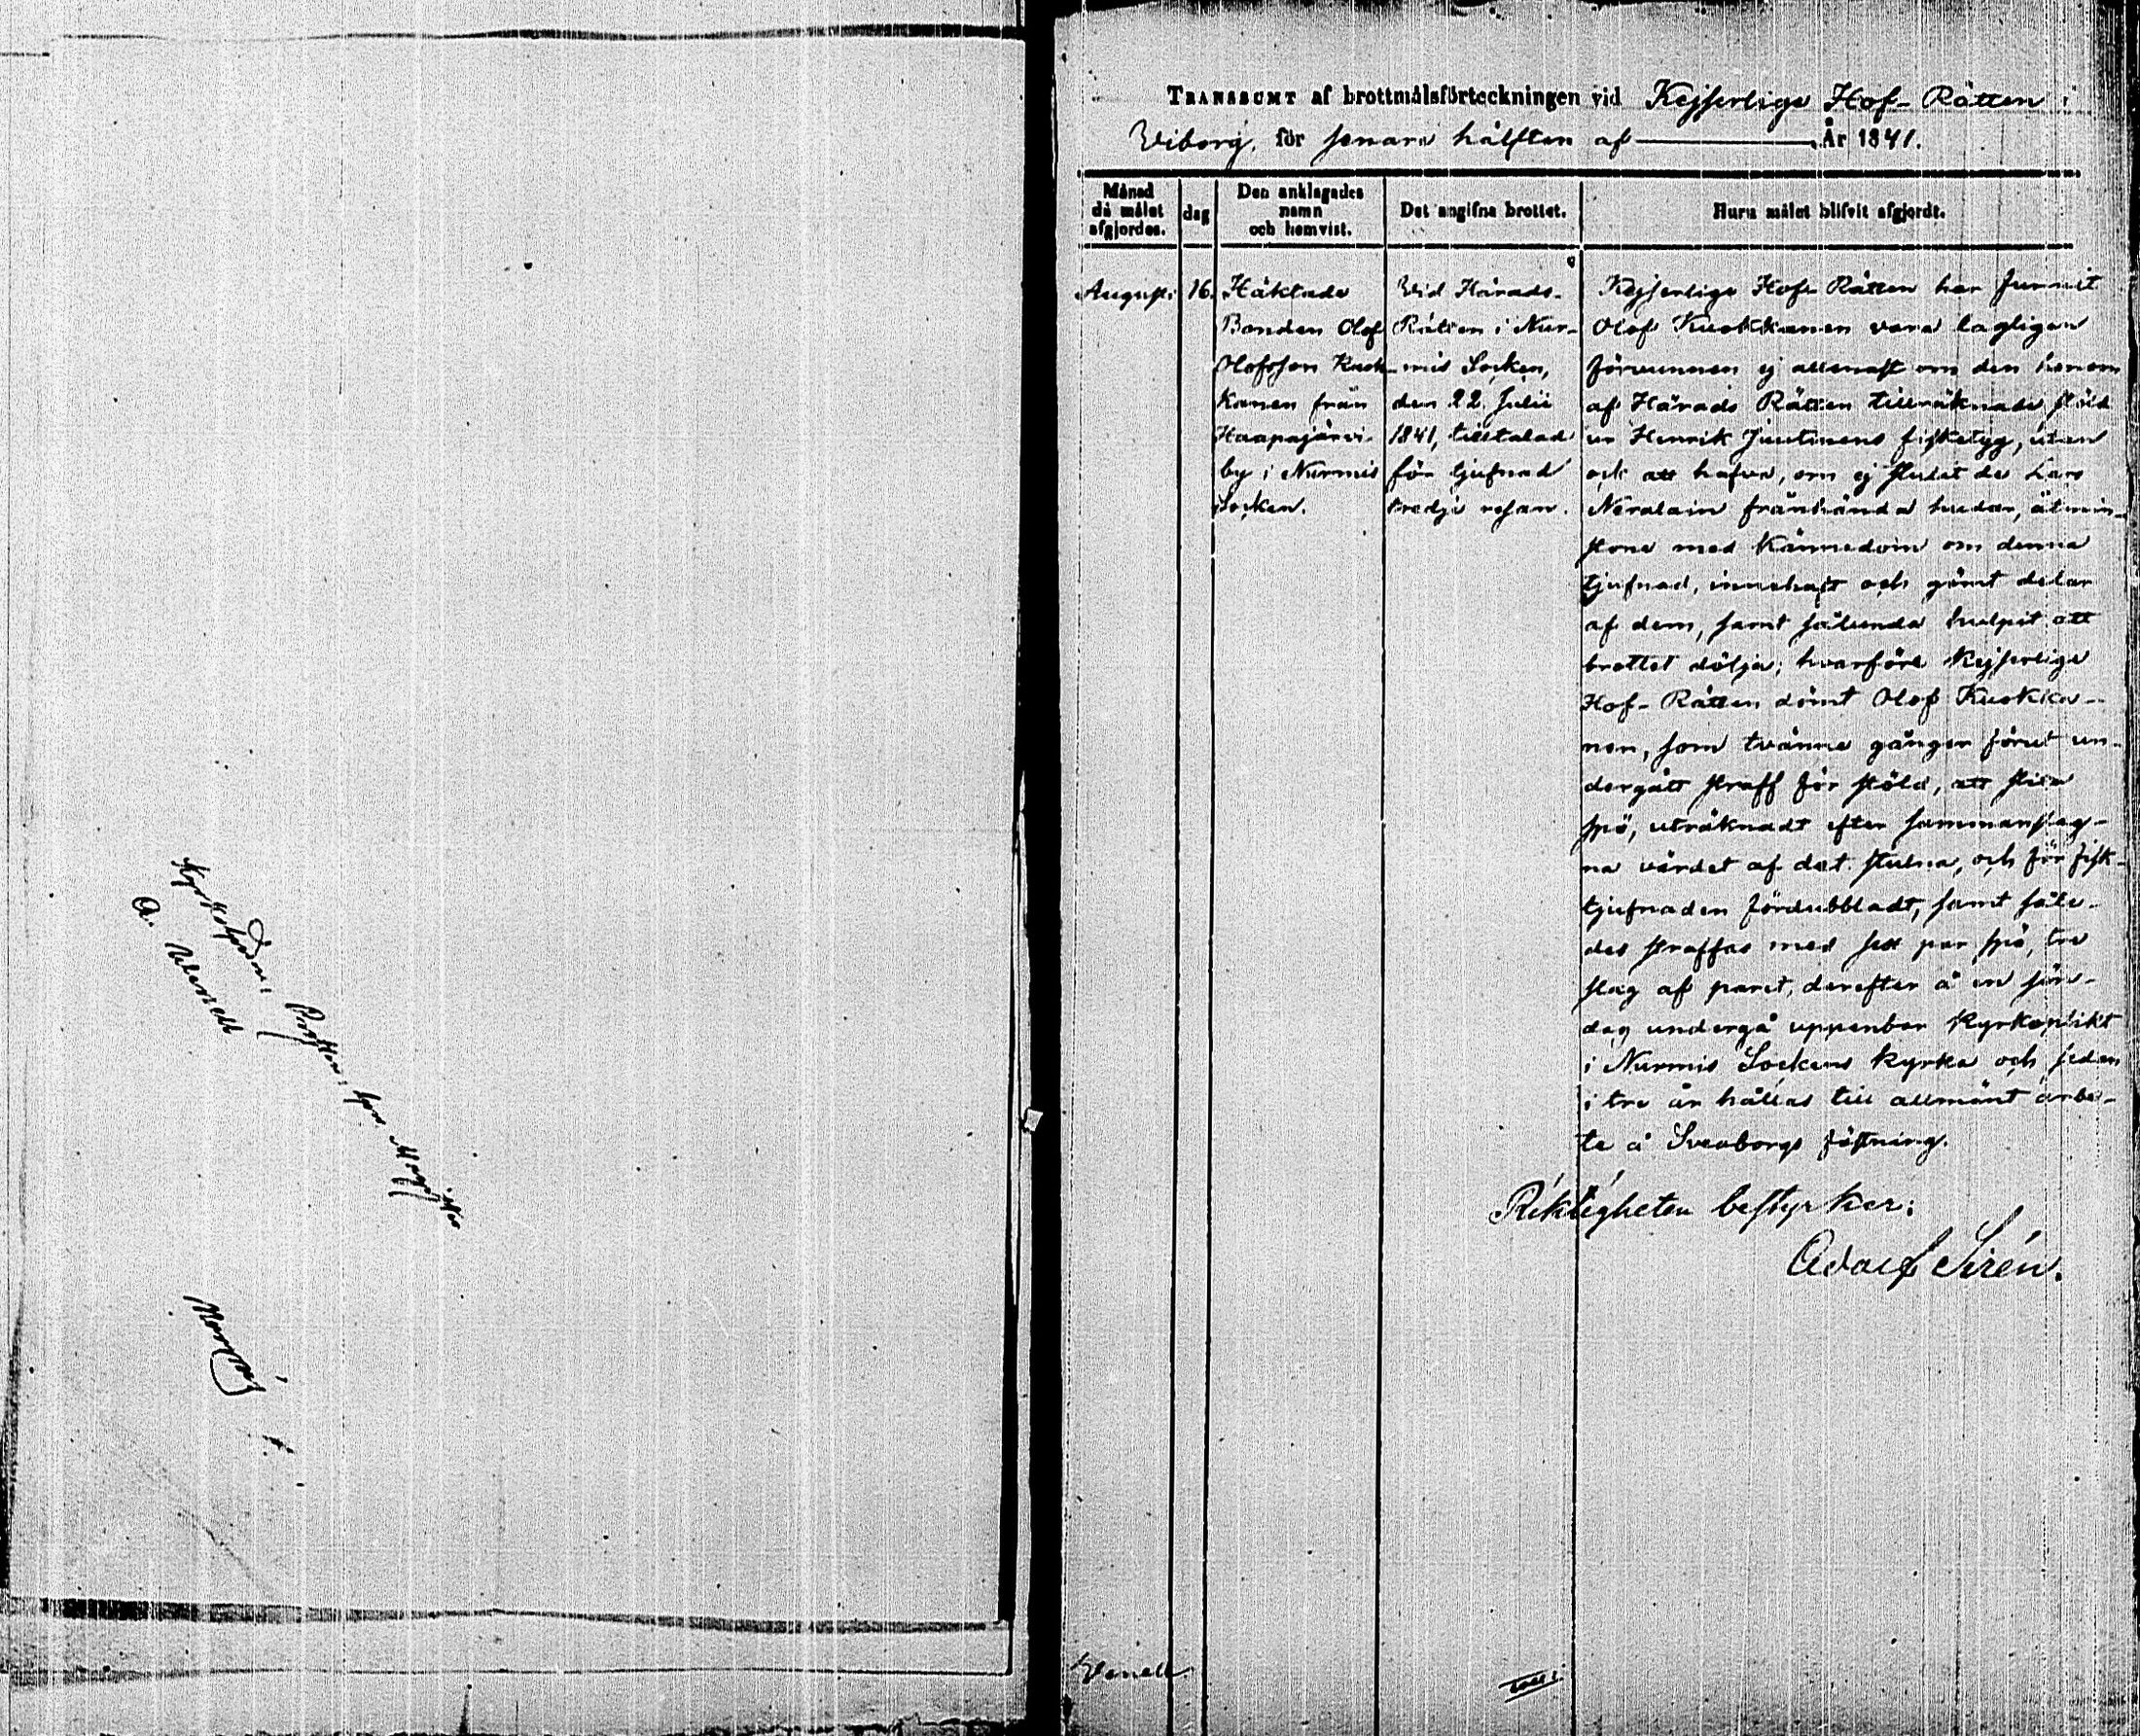 Kyrkoherden,
A.
TRANSSUMT af brottmålsförteckningen vid Kejserlige Hof-Rätten i
Viborg, för senare hälften af År 1841.
Månad
då målet
afgjordes.
dag
Den anklagades
namn
och hemvist.
Det angifna brottet.
Huru målet blifvit afgjordt.
Augusti
16.
Häktade
Bonden Olof
Olofsson Kuok-
kanen från
Haapajärvi
by i Nurmis
Socken.
Vid Härads-
Rätten i Nur-
mis Socken,
den 22 Julii
1841, tilltalad
för tjufnad
tredje resan.
Kejserlige Hof-Rätten har funnit
Olof Kuokkanen vara lagligen
förvunnen ej allenast om den honom
af Härads Rätten tillräknade stöld
ur Henrik Juutinens fisketyg, utan
ock att hafva, om ej stulit de Lars
Neralain frånhända hudar, åtmin-
stone med kännedom om denna
tjufnad, innehaft och gömt delar
af dem, samt sålunda hulpit att
brottet dölja; hvarföre Kejserlige
Hof-Rätten dömt Olof Kuokka-
nen, som tvänne gånger förut un-
dergått straff för stöld, att slita
spö, uträknadt efter sammanlag-
na värdet af det stulna, och för fisk-
tjufnaden fördubbladt, samt såle-
des straffas med sex par spö, tre
slag af paret, derefter å en sön-
dag undergå uppenbar kyrkoplikt
i Nurmis Sockens kyrka och sedan
i tre år hållas till allmänt arbe-
te å Sveaborgs fästning.
Riktigheten bestyrker:
Adolf Sirén.